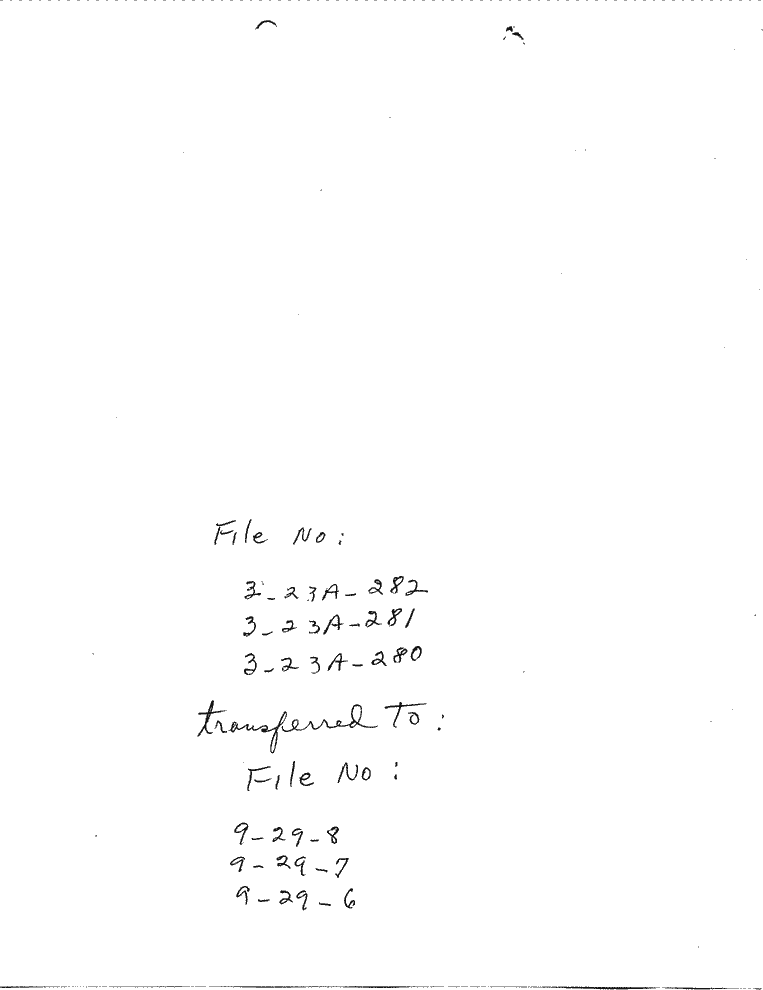 File No:
3-23A-282
3-23A-281
3-23A-280
transferred To:
File No:
9-29-8
9-29-7
9-29-6